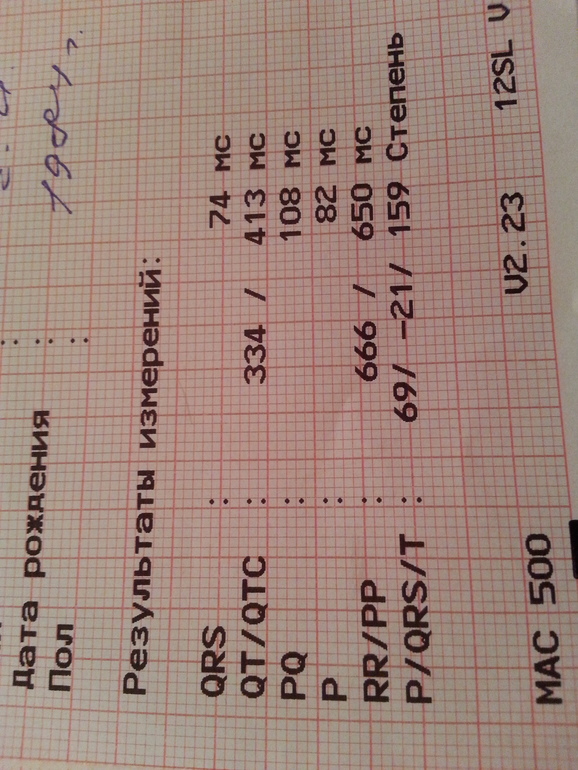 Дата рождения :
Пол : 19 лет
:
Результаты измерений:
QRS : 74 мс
QT/QTC : 334 / 413 мс
PQ : 108 мс
P : 82 мс
RR/PP : 666 / 650 мс
P/QRS/T : 69/ -21/ 159 Степень
MAC 500 V2.23 12SL V